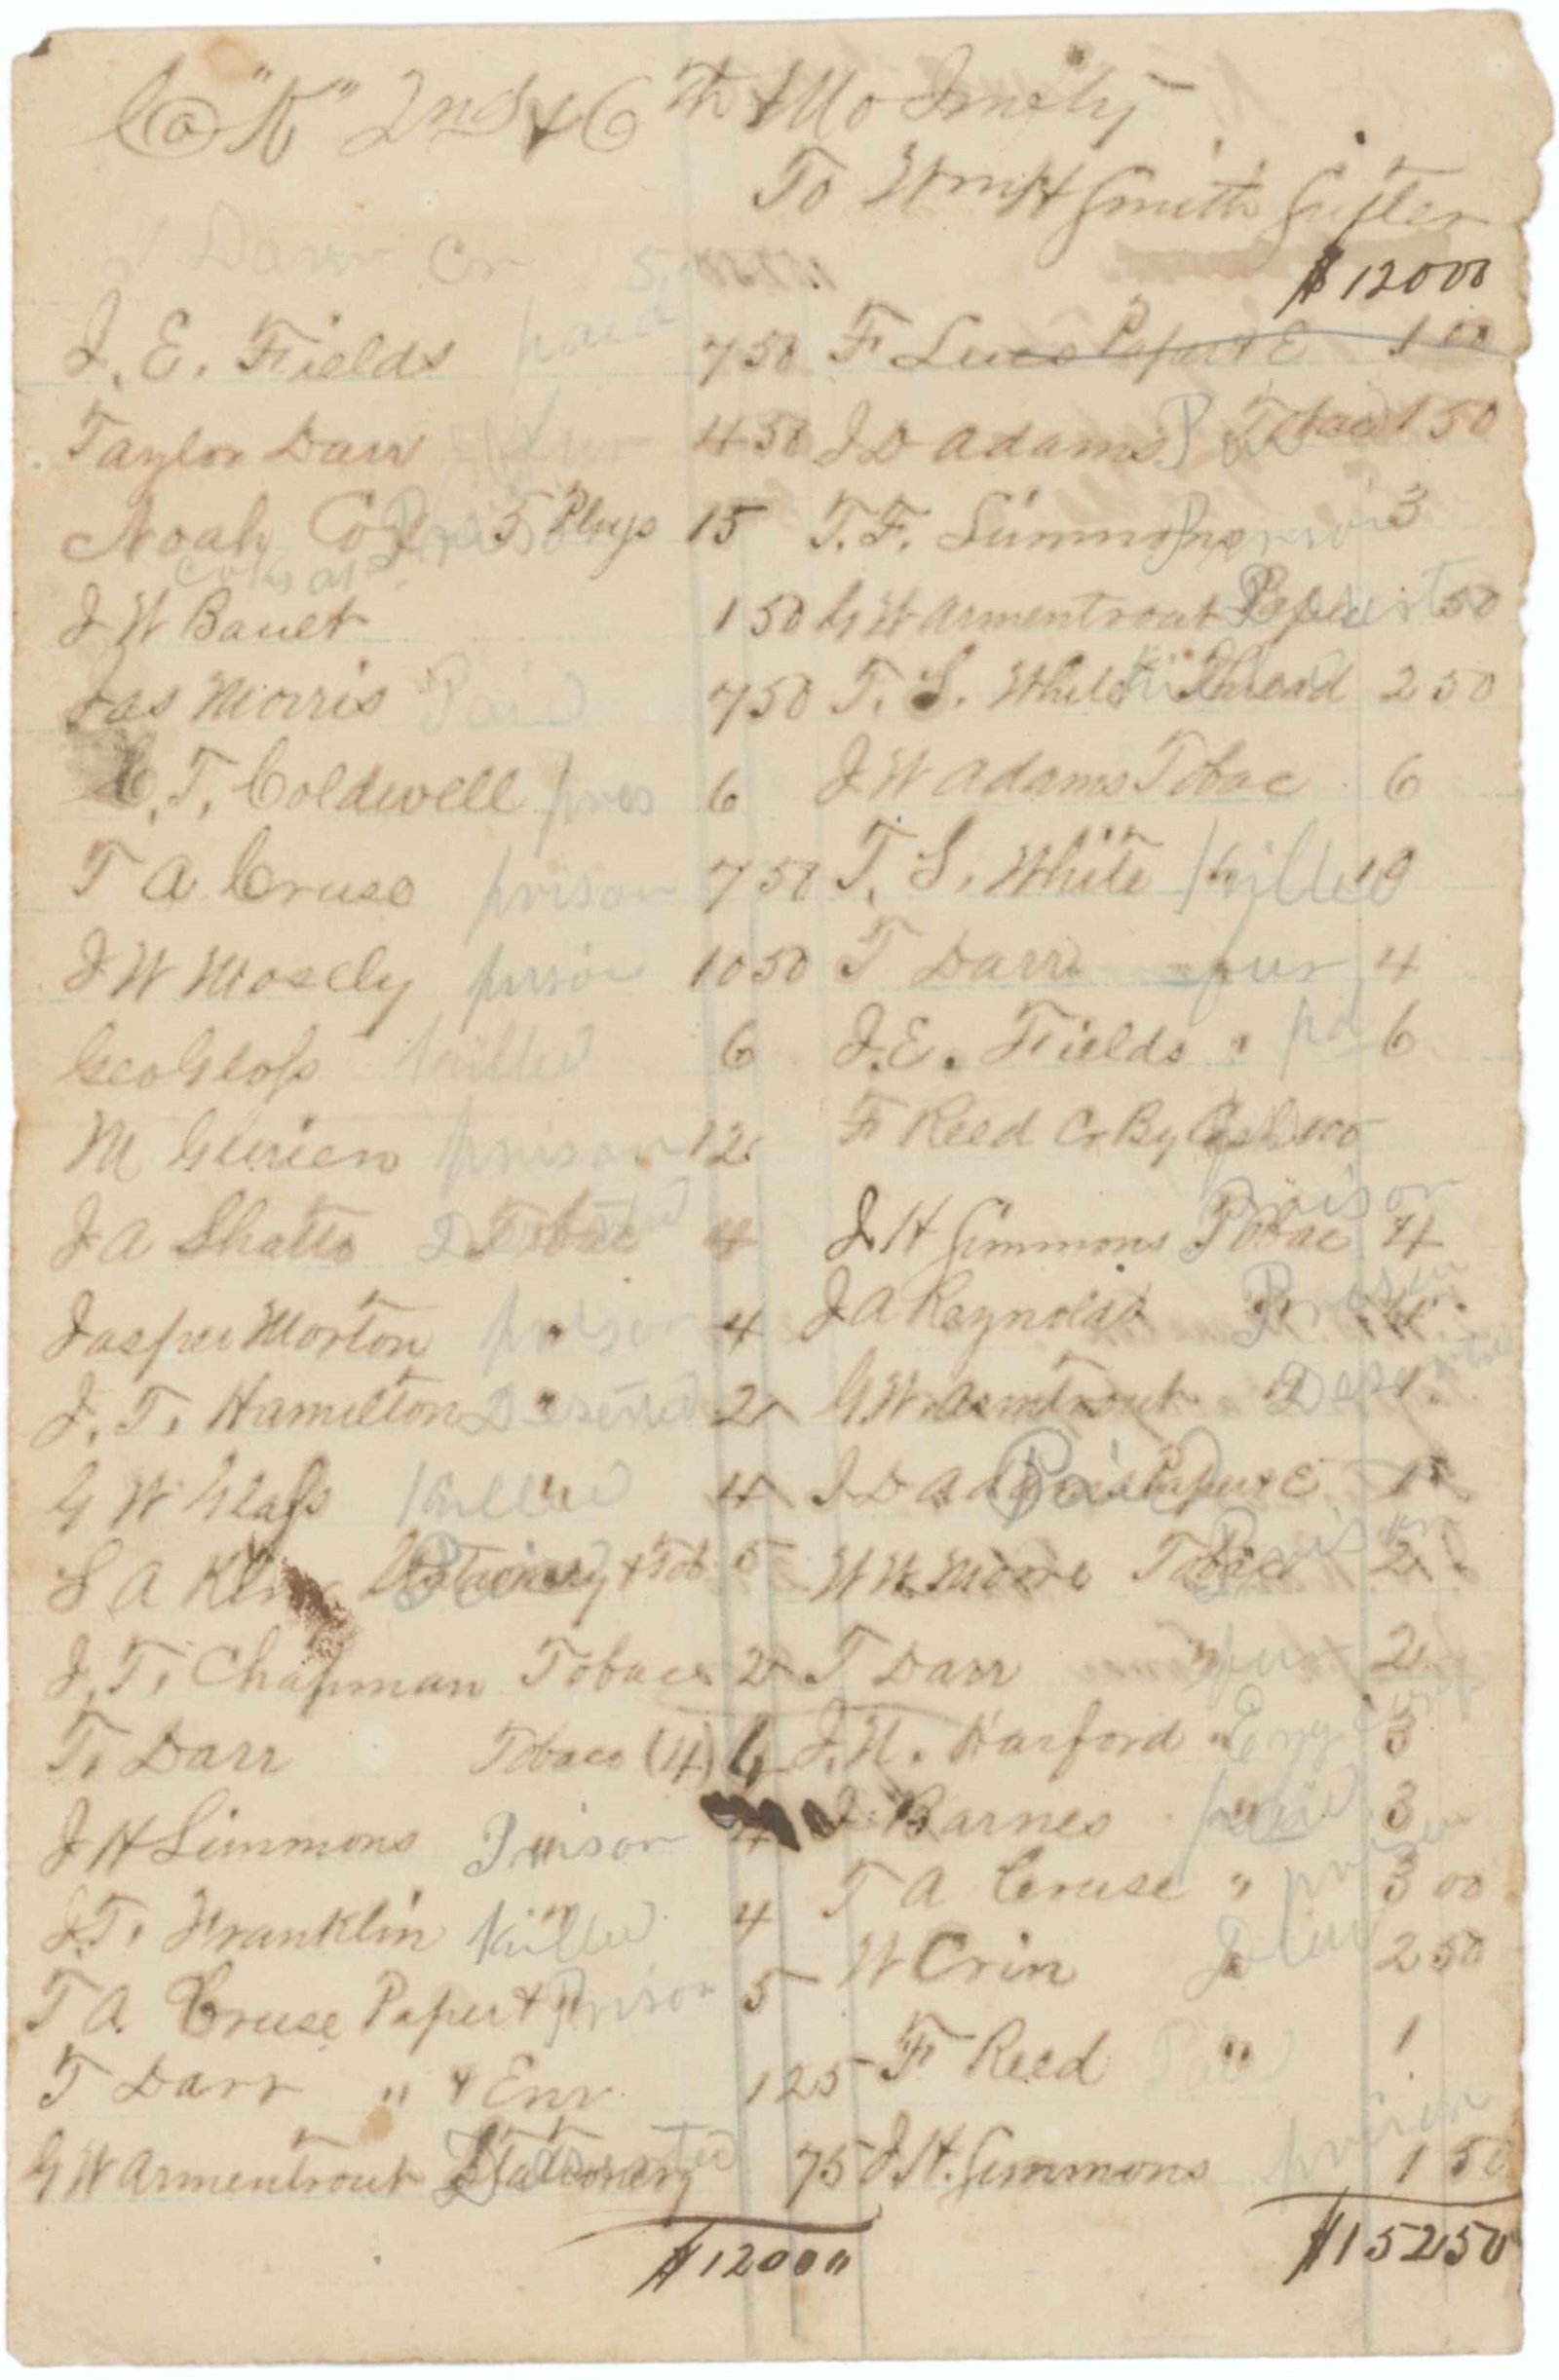 Co "K" 2nd & 6th Mo Infty
To Wm H Smith Sutler
Darr Cr 5
$12000
J. E. Fields paid 7 50
Taylor Darr fur 4 50
Noah Cox Prison 5 Plugs 15
J W Bauet 1 50
Jas Morris Paid 7 50
C. T. Coldwell pris 6
T A Cruse prison 7 50
J W Mosely prison 10 50
Geo Glass killed 6
M Guinn prison 12
J A Shatto Deserted Tobac 4
Jasper Morton prison " 4
J. T. Hamilton Deserted " 2
G W Glass killed " 4
S A King Stationery & Tob 5
J. T. Chapman Tobaco 2
T. Darr Tobaco (4) 4
J H Simmons Prison " 4
J. T. Franklin killed " 4
T A Cruse Paper & Prison 5
T Darr " & Env 1 25
G W Armentrout Stationery Deserted 75
$12000
F Luce Paper & E 1 00
J D Adams Paid Tobac 1 50
T. F. Simmons Prison 3
G W Armentrout Paper 50
T. S. White Thread 2 50
J W Adams Tobac 6
T. S. White killed 10
T Darr fur 4
J. E. Fields " pd 6
F Reed Cr By Cash
J H Simmons Prison Tobac 4
J A Reynolds Prison " 4
G W Armtrout Deserted " 1
J D Adams Paid Paper & E 1
W W Moore Prison Tobac 2
T Darr " fur 2
J. N. Harford " 3
J. Barnes " paid 3
T A Cruse " prison 3 00
W Crin 2 50
F Reed Paid " 1
J H. Simmons prison 1 50
$152 50